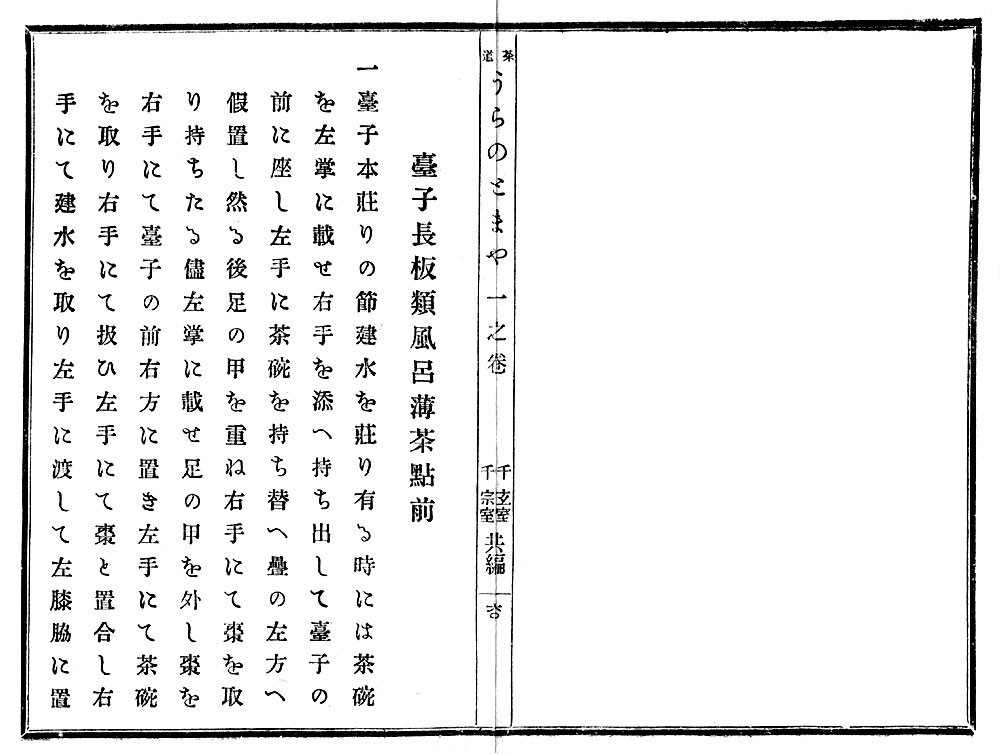 茶道
うらのとまや 一之卷
千玄室
千宗室
共編
臺子長板類風呂薄茶點前
一臺子本莊りの節建水を莊り有る時には茶碗
を左掌に載せ右手を添へ持ち出して臺子の
前に座し左手に茶碗を持ち替へ疊の左方へ
假置し然る後足の甲を重ね右手にて棗を取
り持ちたる儘左掌に載せ足の甲を外し棗を
右手にて臺子の前右方に置き左手にて茶碗
を取り右手にて扱ひ左手にて棗と置合し右
手にて建水を取り左手に渡して左膝脇に置